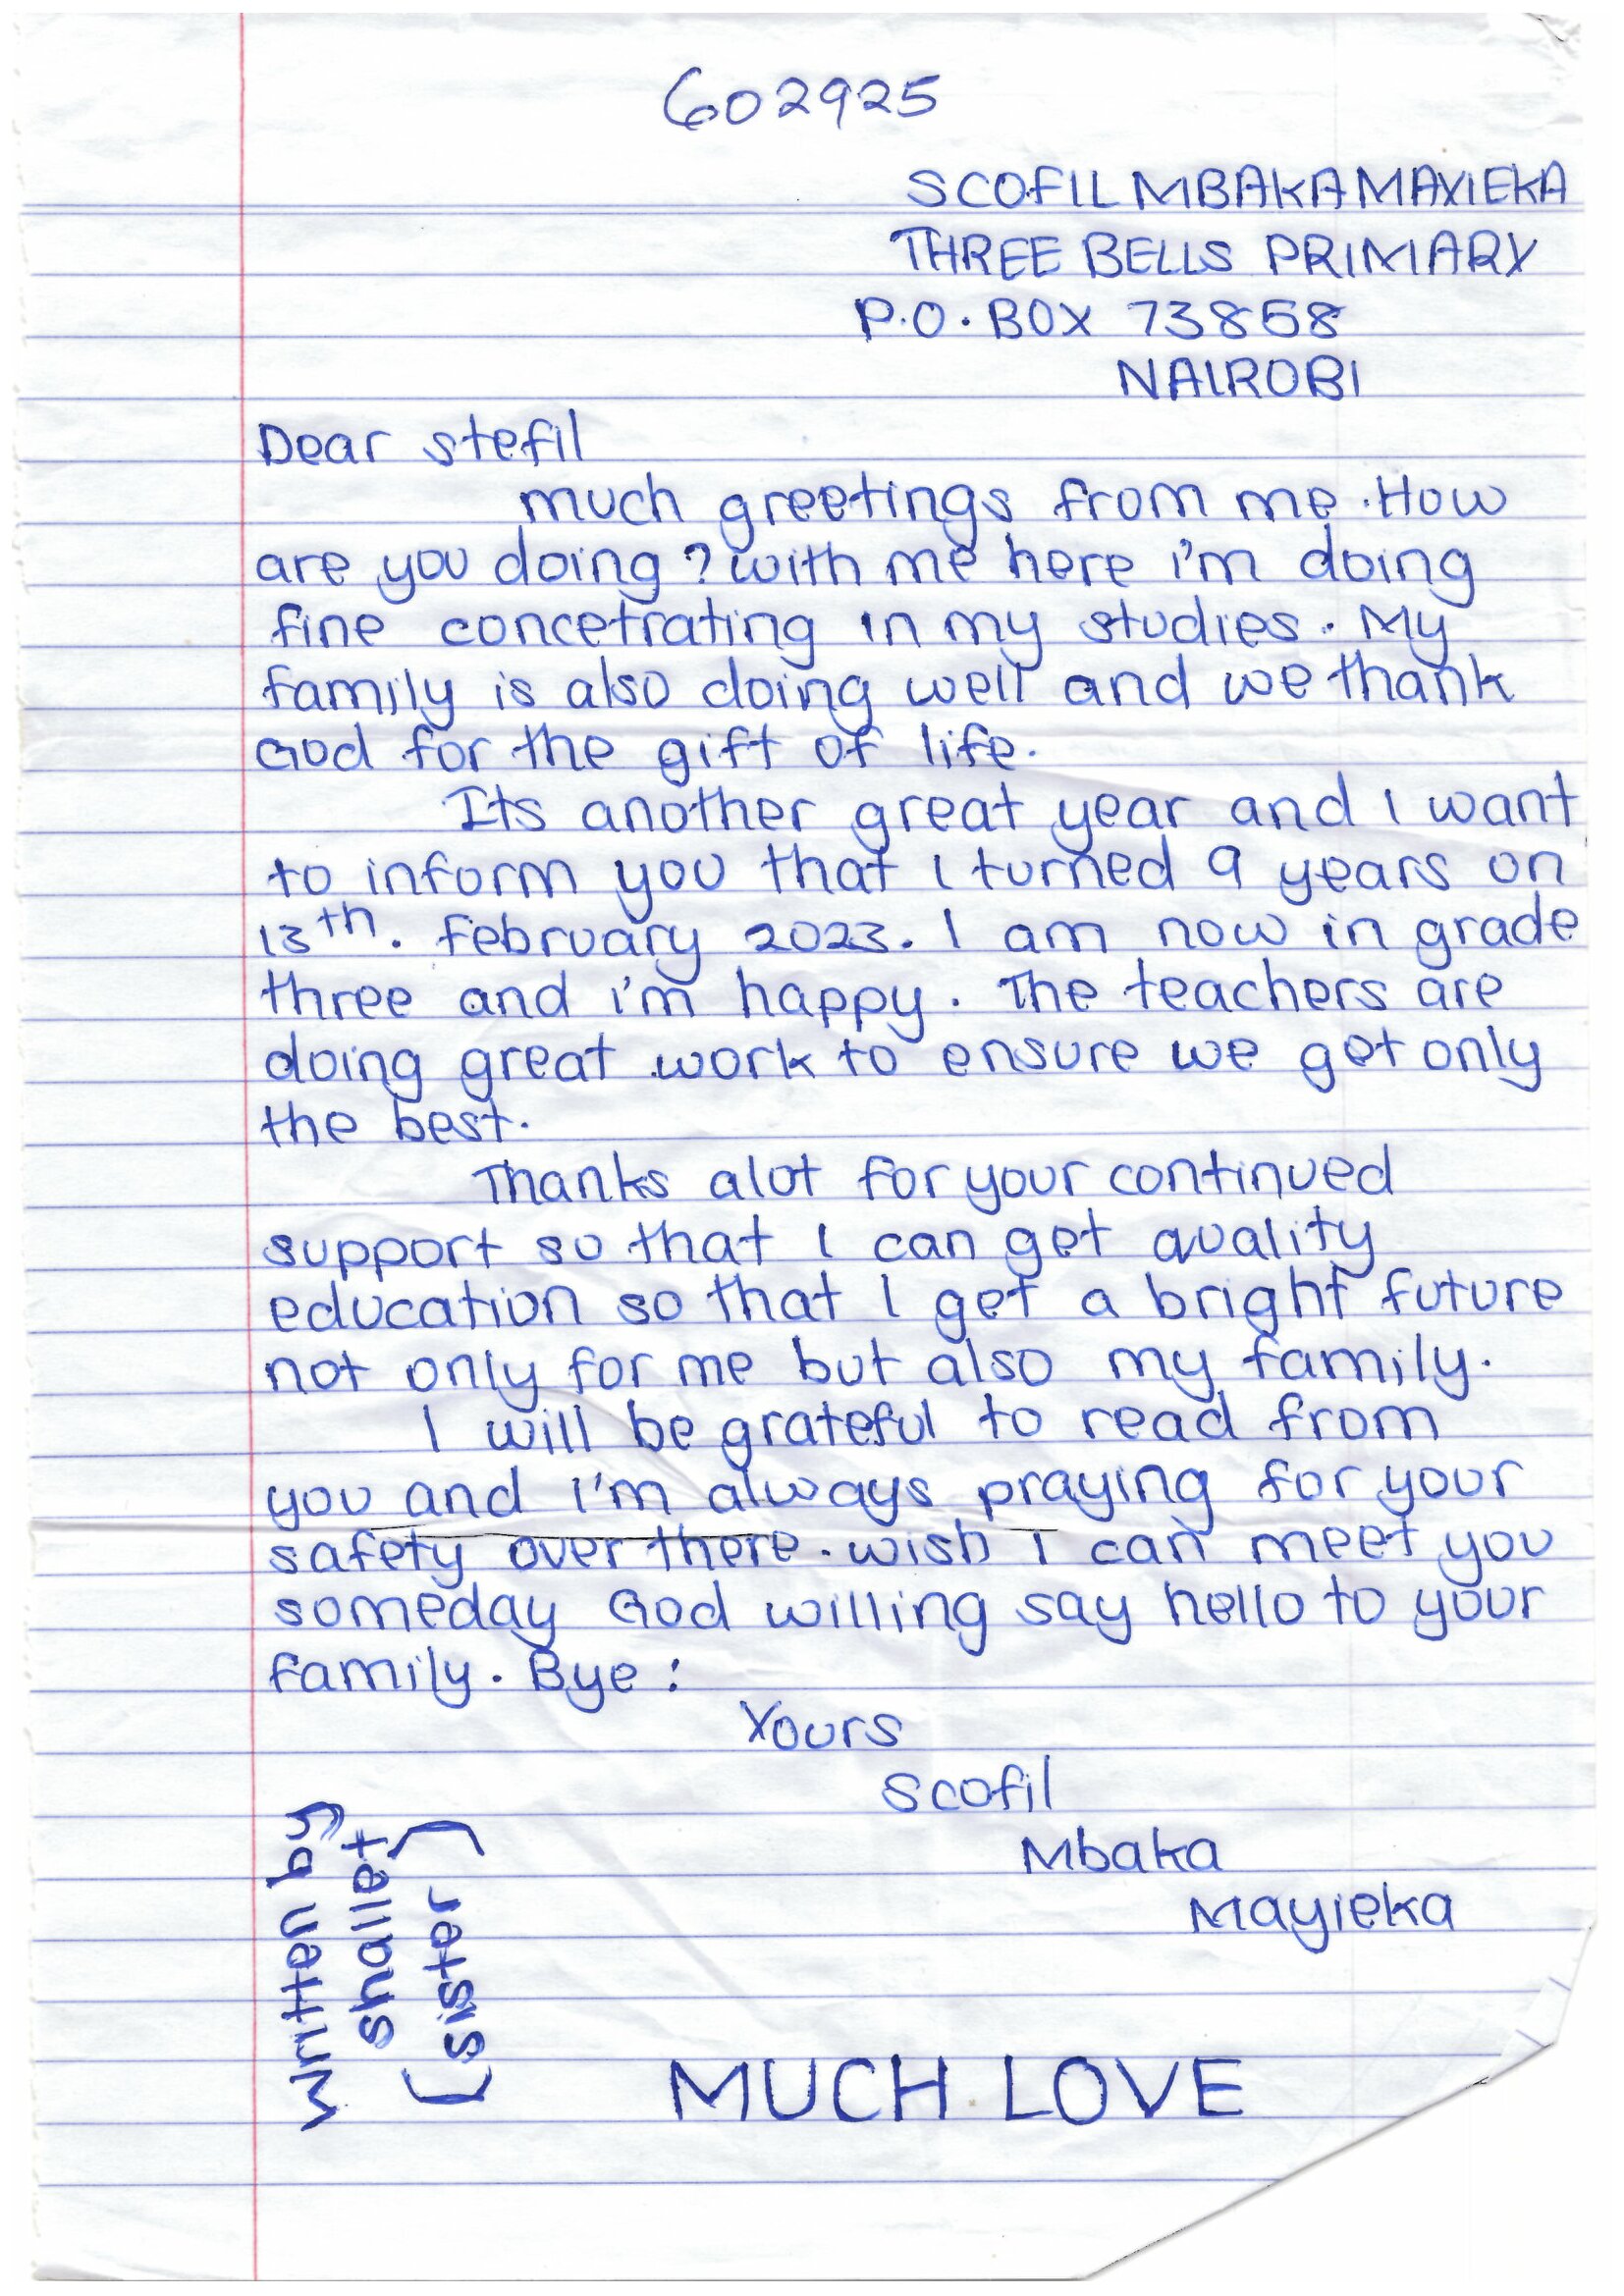 602925
SCOFIL MBAKA MAYIEKA
THREE BELLS PRIMARY
P.O. BOX 73868
NAIROBI
Dear stefil
much greetings from me. How
are you doing? with me here i'm doing
fine concetrating in my studies. My
family is also doing well and we thank
God for the gift of life.
Its another great year and I want
to inform you that I turned 9 years on
13th. february 2023. I am now in grade
three and i'm happy. The teachers are
doing great work to ensure we get only
the best.
Thanks alot for your continued
support so that I can get quality
education so that I get a bright future
not only for me but also my family.
I will be grateful to read from
you and I'm always praying for your
safety over there. wish I can meet you
someday God willing say hello to your
family. Bye!
Yours
Scofil
Mbaka
Mayieka
Written by
shallet
(sister)
MUCH LOVE